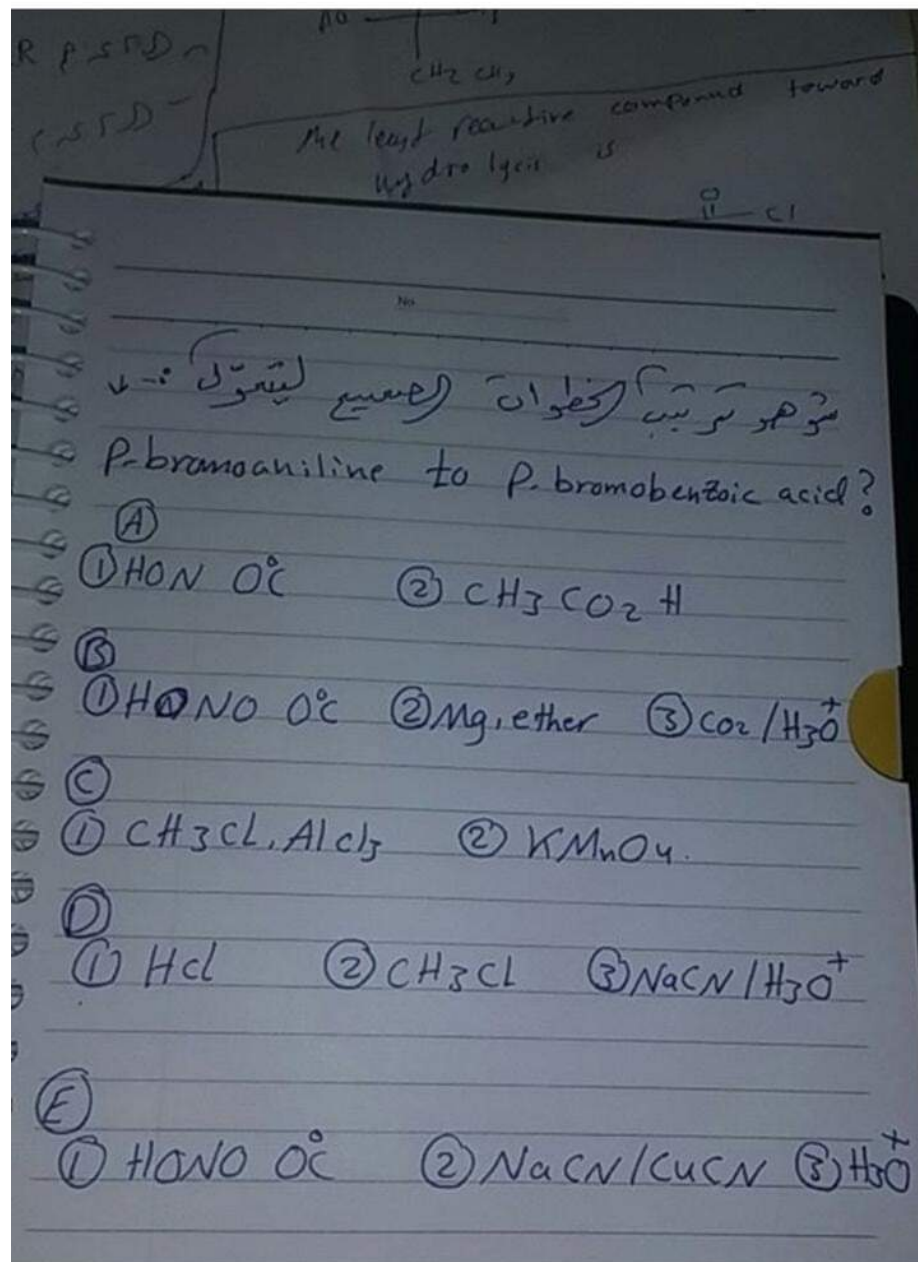 CH2 CH3
The least reactive compound toward
Hydrolycis is
O
Cl
No.
هو ترتيب الخطوات الصحيح ليتحول :-
P-bromoaniline to P-bromobenzoic acid?
A
① HON 0°C ② CH3CO2H
B
① HONO 0°C ② Mg, ether ③ CO2/H3O+
C
① CH3CL, Alcl3 ② KMnO4.
D
① Hcl ② CH3CL ③ NaCN/H3O+
E
① HONO 0°C ② NaCN/CuCN ③ H3O+